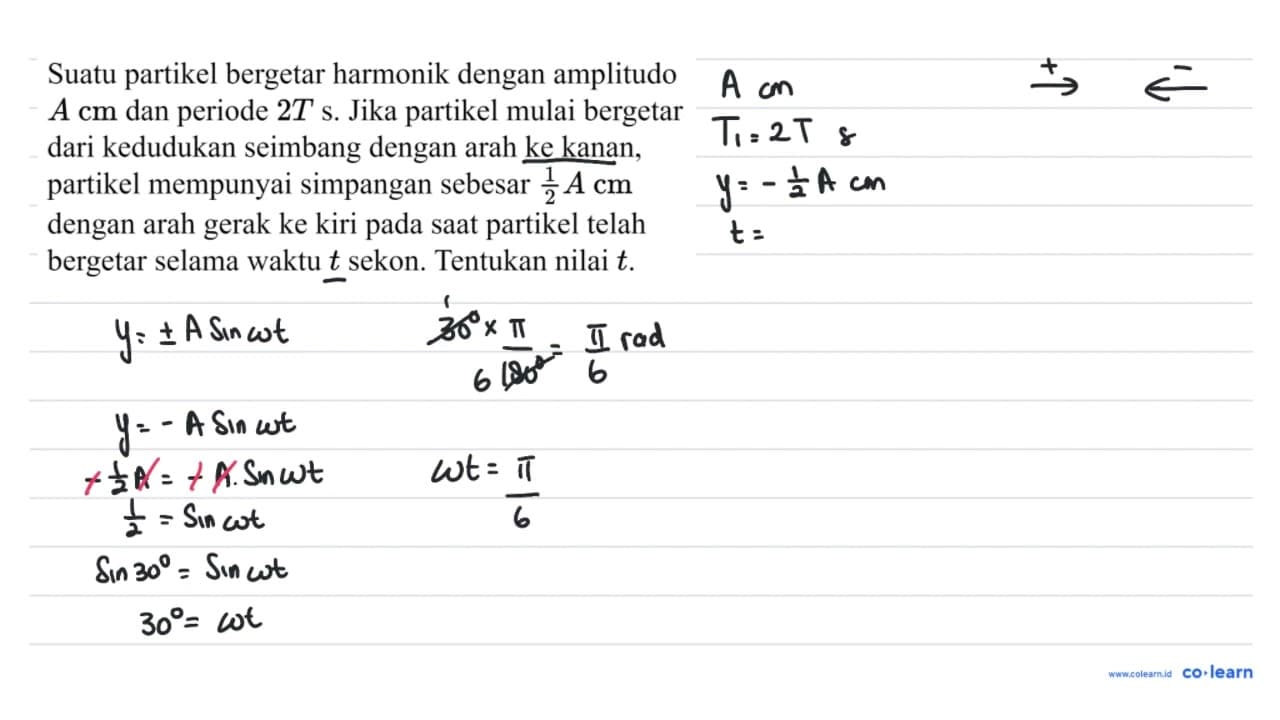 Suatu partikel bergetar harmonik dengan amplitudo
A cm dan periode 2T s. Jika partikel mulai bergetar
dari kedudukan seimbang dengan arah ke kanan,
partikel mempunyai simpangan sebesar 1/2 A cm
dengan arah gerak ke kiri pada saat partikel telah
bergetar selama waktu t sekon. Tentukan nilai t.
A cm
T₁ = 2T s
y = - 1/2 A cm
t =
+ → ← -
y = ± A Sin ωt
y = - A Sin ωt
- 1/2 A = - A. Sin ωt
1/2 = Sin ωt
Sin 30° = Sin ωt
30° = ωt
1
30° × π/180° = π/6 rad
6
ωt = π/6
www.colearn.id co·learn